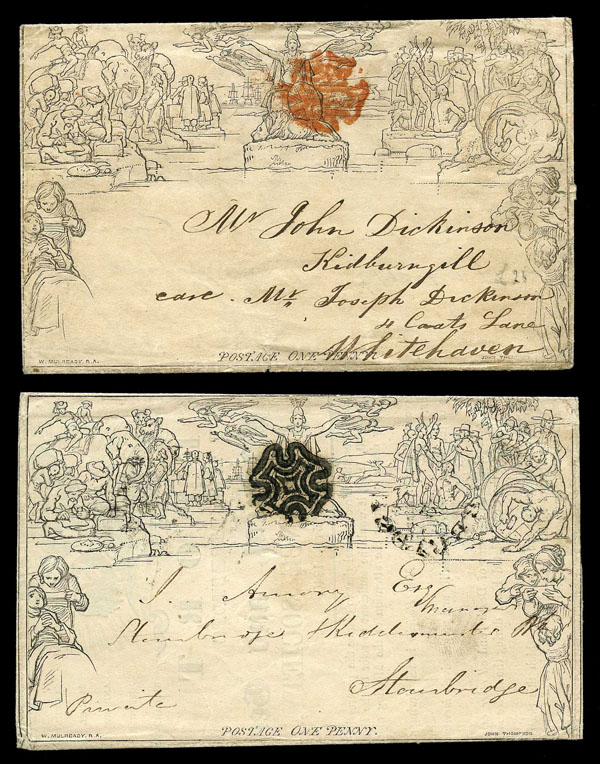 Mr John Dickinson
Kidburngill
care. Mr. Joseph Dickinson
4 Coats Lane
Whitehaven
W. MULREADY, R.A.
POSTAGE ONE PENNY.
JOHN
J. Amory Esq
Manager
Stourbridge & Kidderminster Bk
Stourbridge
Private
W. MULREADY, R.A.
POSTAGE ONE PENNY.
JOHN THOMPSON